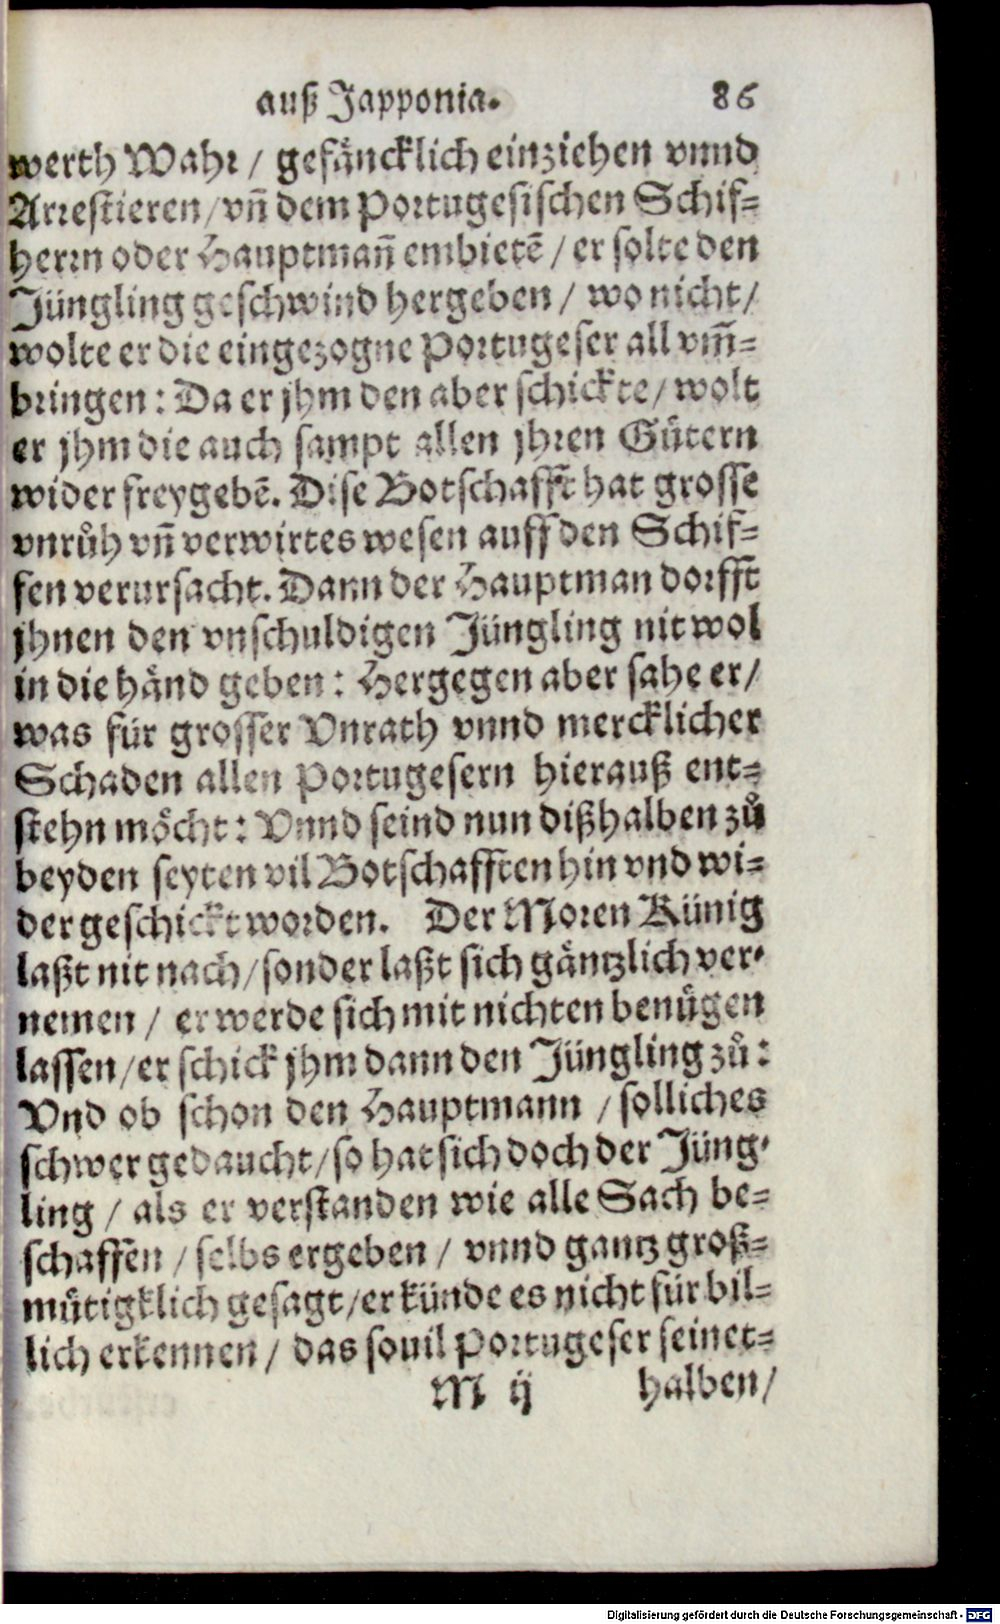 auß Japponia. 86
werth Wahr / gefäncklich einziehen vnnd
Arrestieren / vñ dem Portugesischen Schif-
herrn oder Hauptmañ embietẽ / er solte den
Jüngling geschwind hergeben / wo nicht /
wolte er die eingezogne Portugeser all vm̃-
bringen: Da er jhm den aber schickte / wolt
er jhm die auch sampt allen jhren Gütern
wider freygebẽ. Dise Botschafft hat grosse
vnrůh vñ verwirtes wesen auff den Schif-
fen verursacht. Dann der Hauptman dorfft
jhnen den vnschuldigen Jüngling nit wol
in die händ geben: Hergegen aber sahe er /
was für grosser Vnrath vnnd mercklicher
Schaden allen Portugesern hierauß ent-
stehn möcht: Vnnd seind nun dißhalben zů
beyden seyten vil Botschafften hin vnd wi-
der geschickt worden. Der Moren Künig
laßt nit nach / sonder laßt sich gäntzlich ver-
nemen / er werde sich mit nichten benügen
lassen / er schick jhm dann den Jüngling zů:
Vnd ob schon den Hauptmann / solliches
schwer gedaucht / so hat sich doch der Jüng-
ling / als er verstanden wie alle Sach be-
schaffen / selbs ergeben / vnnd gantz groß-
mütigklich gesagt / er künde es nicht für bil-
lich erkennen / das souil Portugeser seinet-
M ij halben /
Digitalisierung gefördert durch die Deutsche Forschungsgemeinschaft - DFG